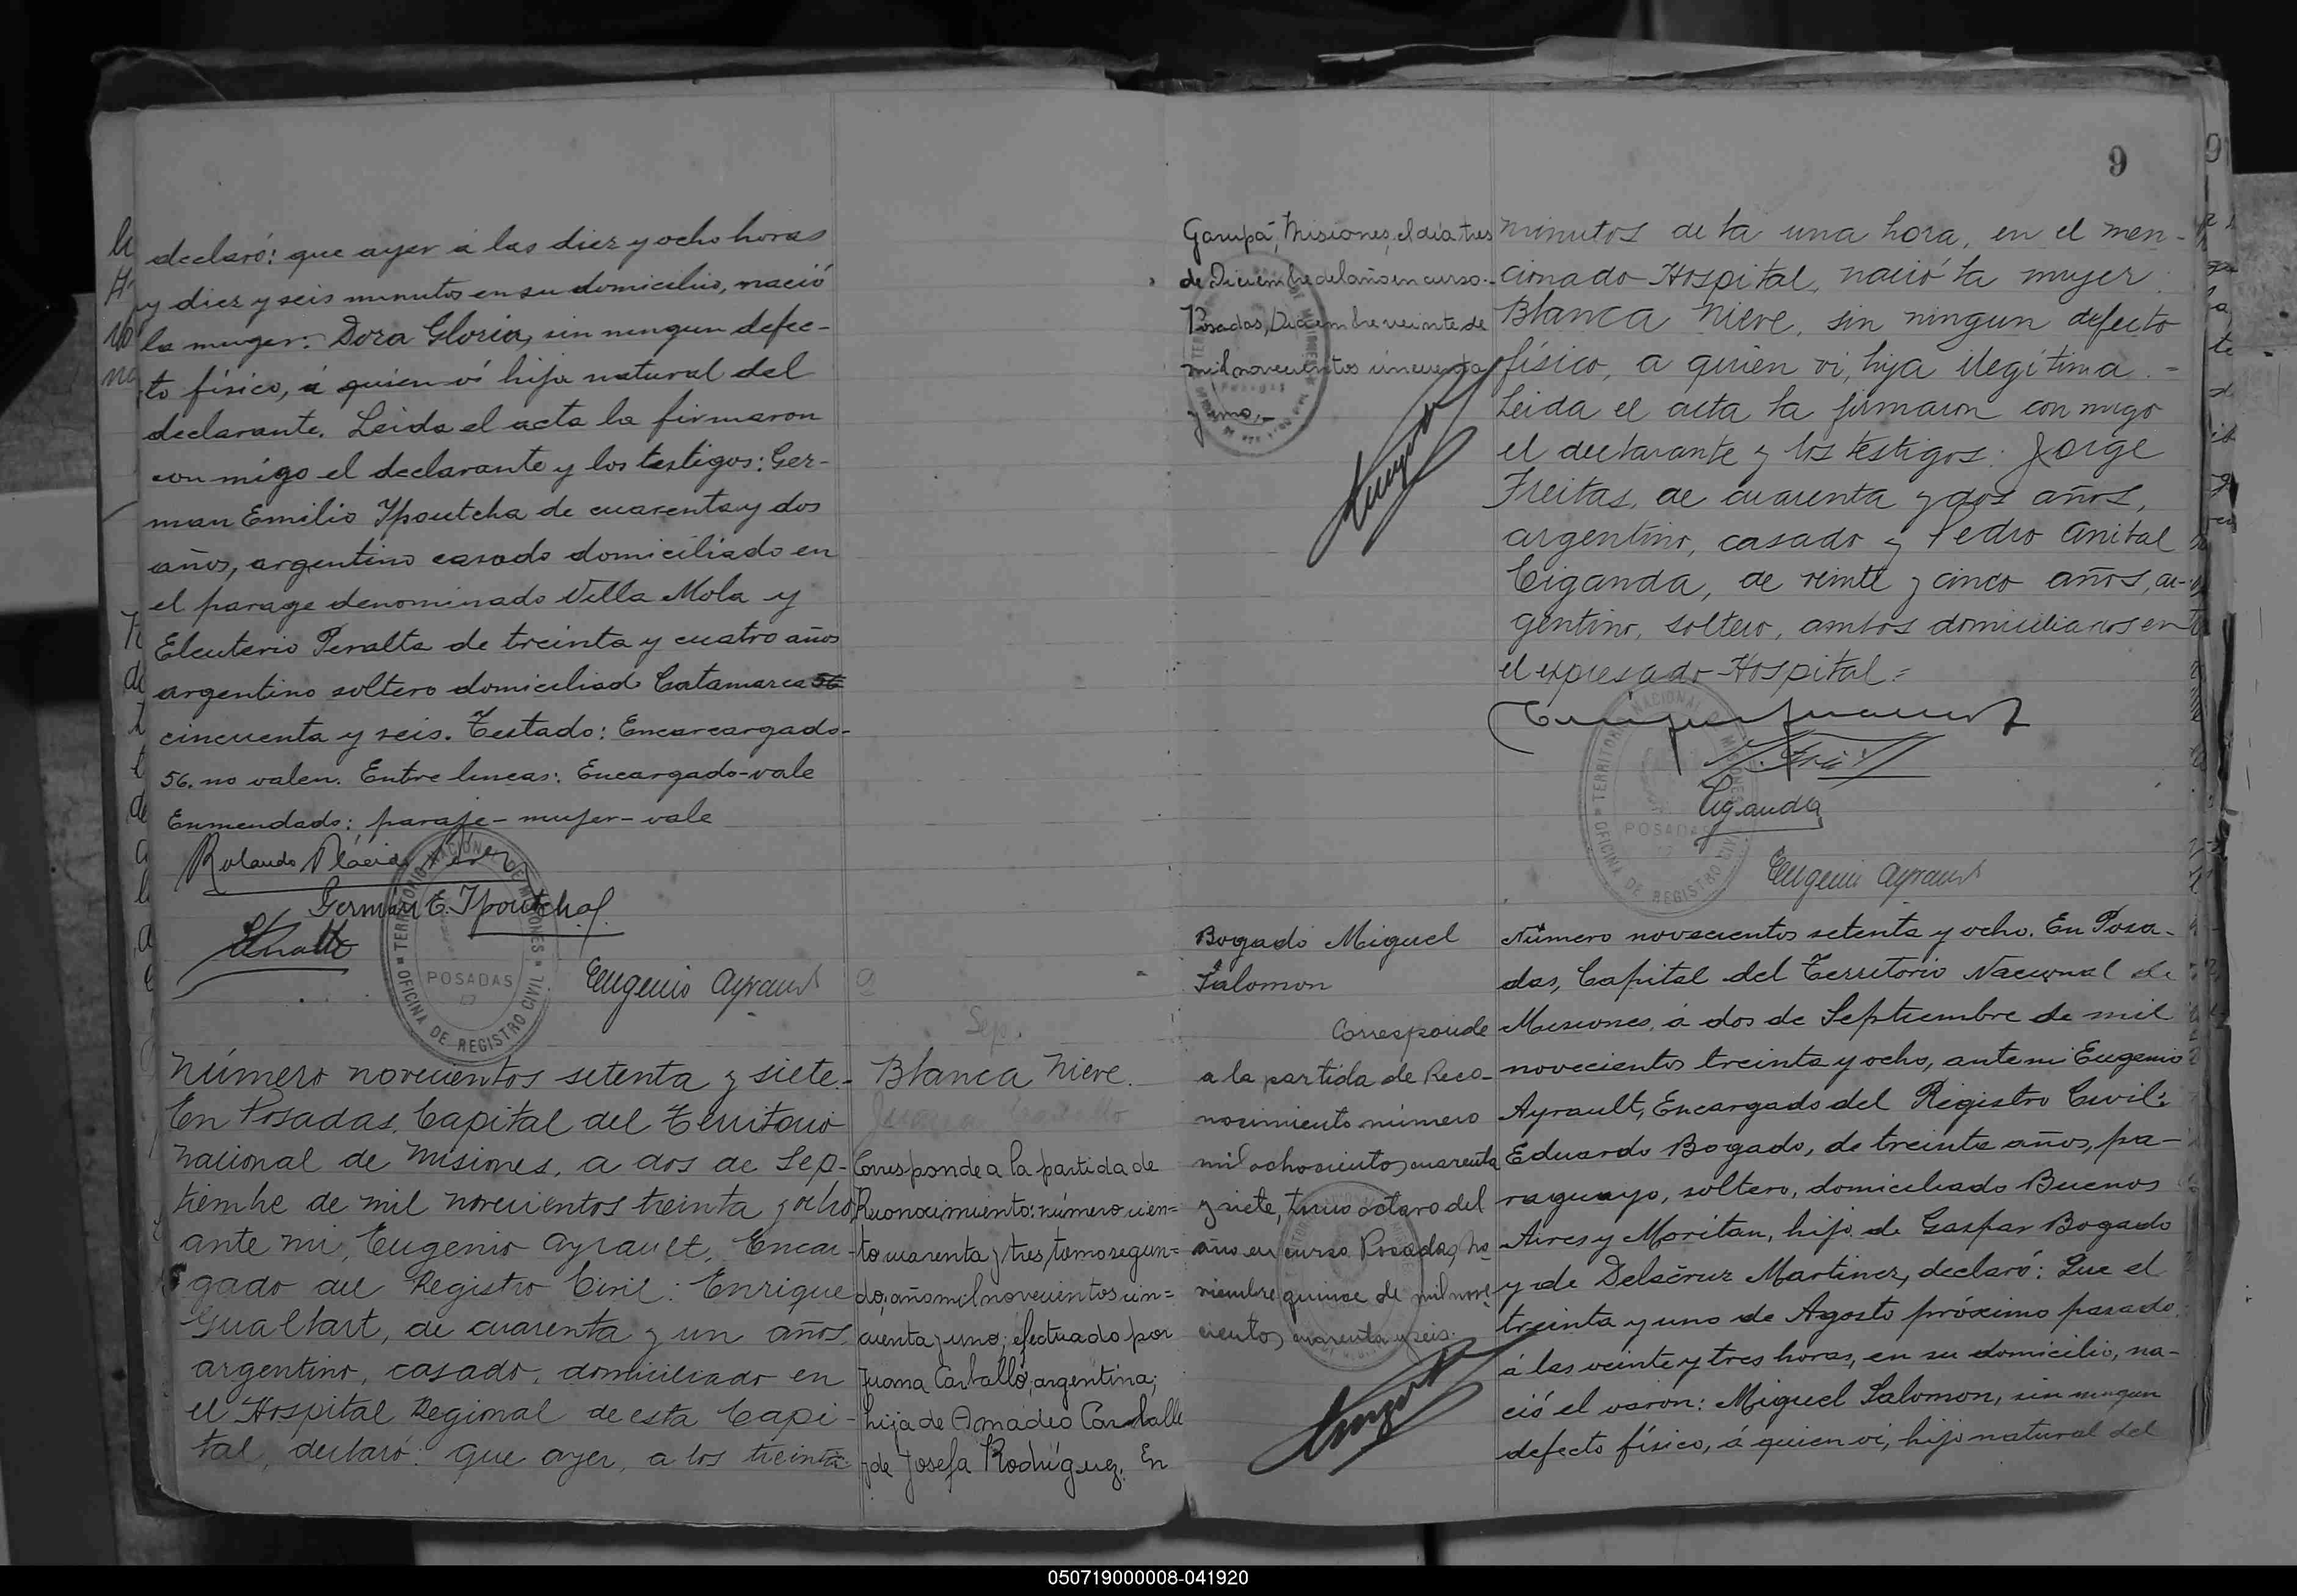 declaró: que ayer á las diez y ocho horas
y diez y seis minutos en su domicilio, nació
la muger: Dora Gloria, sin ningun defec-
to físico, á quien ví hija natural del
declarante. Leida el acta la firmaron
con migo el declarante y los testigos: Ger-
man Emilio Ypoutcha de cuarenta y dos
años, argentino casado domiciliado en
el parage denominado Villa Mola y
Eleuterio Peralta de treinta y cuatro años
argentino soltero domiciliado Catamarca 56
cincuenta y seis. Testado: Encarcargado-
56. no valen. Entre lineas: Encargado-vale
Enmendado: paraje - mujer - vale
Rolando Plácido
German E. Ypoutcha
TERRITORIO NACIONAL DE MISIONES
POSADAS
OFICINA DE REGISTRO CIVIL
Eugenio Ayrault
Número novecientos setenta y siete.-
En Posadas, Capital del Territorio
Nacional de Misiones, a dos de Sep-
tiembre de mil novecientos treinta y ocho,
ante mi, Eugenio Ayrault, Encar-
gado del Registro Civil: Enrique
Gualtart, de cuarenta y un años,
argentino, casado, domiciliado en
el Hospital Regional de esta Capi-
tal, declaró: que ayer, a los treinta
Sep.
Blanca Nieve.
Corresponde a la partida de
Reconocimiento: número cien=
to cuarenta y tres, tomo segun=
do, año mil novecientos cin=
cuenta y uno; efectuado por
Juana Carballo, argentina;
hija de Amadeo Carballo
y de Josefa Rodríguez. En
Garupá, Misiones, el día tres
de Diciembre del año en curso.-
Posadas, Diciembre veinte de
mil novecientos cincuenta
y uno.-
9
minutos de la una hora, en el men-
cionado Hospital, nació la mujer
Blanca Nieve, sin ningun defecto
físico, a quien vi, hija ilegítima.=
Leida el acta la firmaron con migo
el declarante y los testigos: Jorge
Freitas, de cuarenta y dos años,
argentino, casado y Pedro Anibal
Ciganda, de veinte y cinco años, ar-
gentino, soltero, ambos domiciliados en
el expresado Hospital.=
TERRITORIO NACIONAL DE MISIONES
POSADAS
OFICINA DE REGISTRO CIVIL
Ciganda
Eugenio Ayrault
Bogado Miguel
Salomon
Corresponde
a la partida de Reco-
nocimiento número
mil ochocientos cuarenta
y siete, tomo octavo del
año en curso. Posadas, No-
viembre quince de mil nove-
cientos cuarenta y seis.
Número novecientos setenta y ocho. En Posa-
das, Capital del Territorio Nacional de
Misiones, á dos de Septiembre de mil
novecientos treinta y ocho, ante mi Eugenio
Ayrault, Encargado del Registro Civil:
Eduardo Bogado, de treinta años, pa-
raguayo, soltero, domiciliado Buenos
Aires y Moritan, hijo de Gaspar Bogado
y de Delacruz Martinez, declaró: Que el
treinta y uno de Agosto próximo pasado
á las veinte y tres horas, en su domicilio, na-
ció el varon: Miguel Salomon, sin ningun
defecto físico, á quien vi, hijo natural del
050719000008-041920